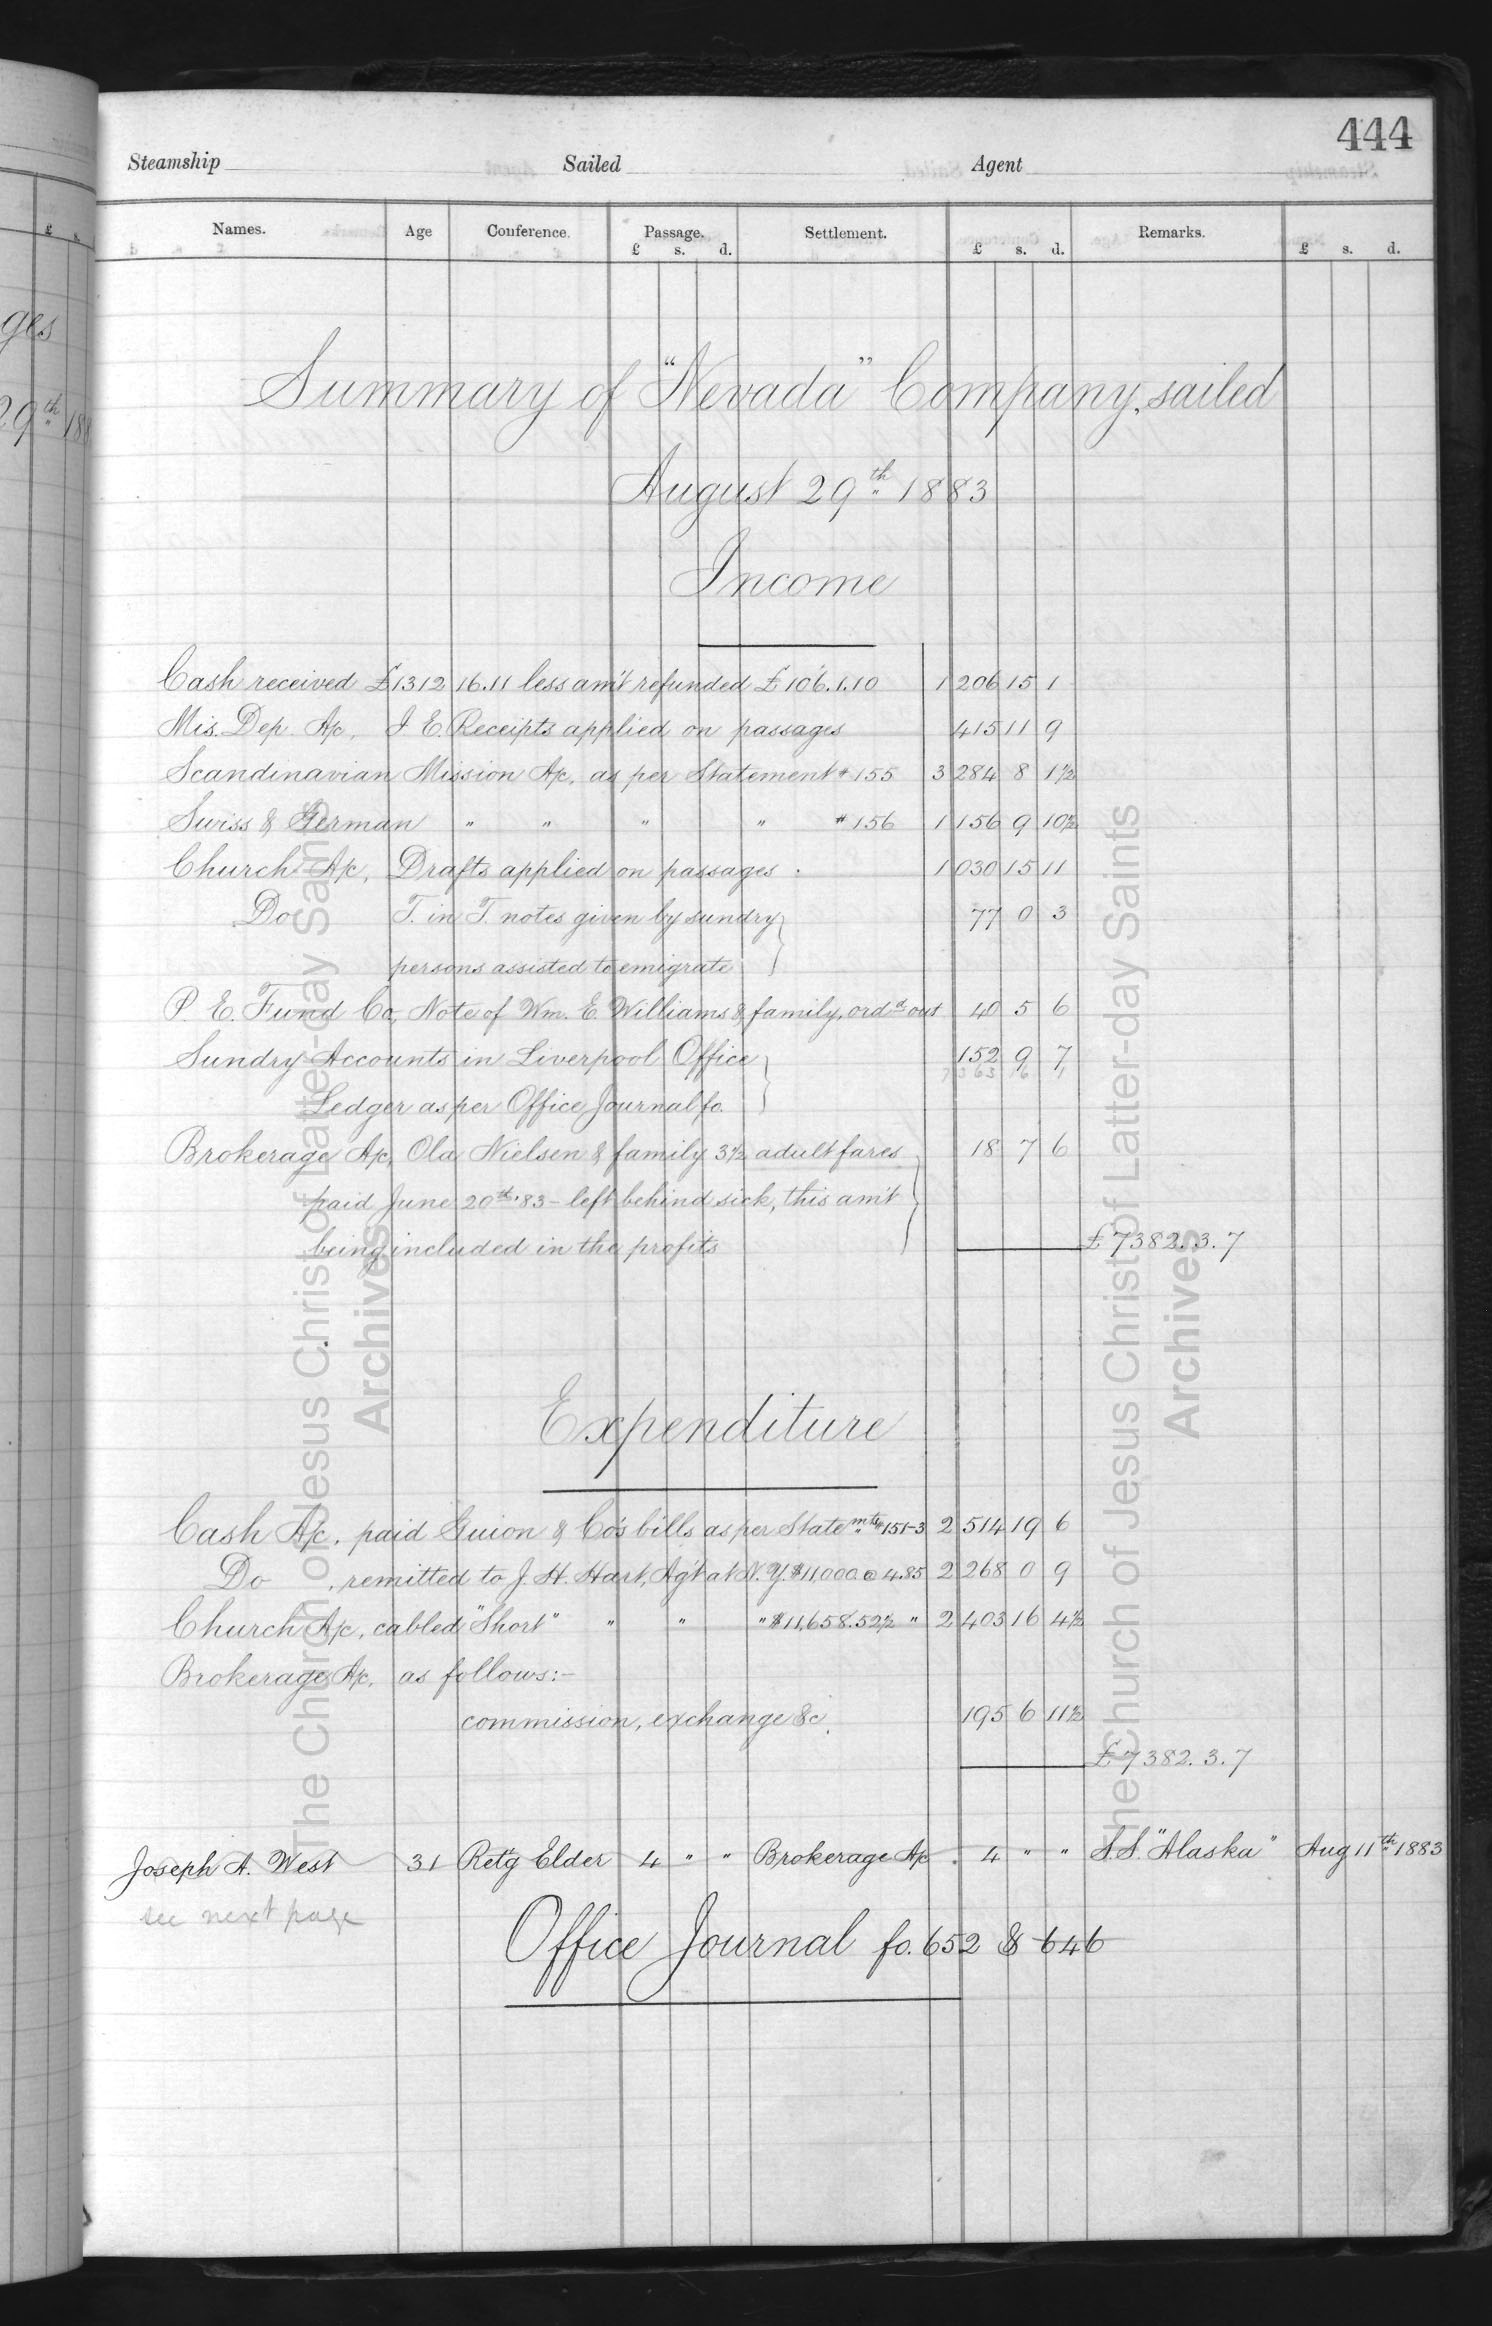 444
Steamship Sailed Agent
Names. Age Conference. Passage. Settlement. Remarks.
£ s. d. £ s. d. £ s. d.
ges
29th 188
Summary of "Nevada" Company, sailed
August 29th 1883
Income
Cash received £1312 16.11 less am't refunded £106.1.10 1 206 15 1
Mis. Dep. A/c, I E. Receipts applied on passages 415 11 9
Scandinavian Mission A/c, as per Statement # 155 3 284 8 1½
Swiss & German " " " " # 156 1 156 9 10½
Church A/c, Drafts applied on passages. 1 030 15 11
Do T. in T. notes given by sundry 77 0 3
persons assisted to emigrate
P. E. Fund Co, Note of Wm. E. Williams & family, ordd out 40 5 6
Sundry Accounts in Liverpool Office 152 9 7
7363 16 1
Ledger as per Office Journal fo.
Brokerage A/c, Ola Nielsen & family 3½ adult fares 18 7 6
paid June 20th '83 - left behind sick, this am't
being included in the profits £7382.3.7
Expenditure
Cash A/c, paid Guion & Co's bills as per Statemts #151-3 2 514 19 6
Do , remitted to J. H. Hart, Ag't at N. Y. $11,000 @ 4.85 2 268 0 9
Church A/c, cabled "Short" " " " $11,658.52½ " 2 403 16 4½
Brokerage A/c, as follows:-
commission, exchange &c. 195 6 11½
£7382.3.7
Joseph A. West 31 Ret'g Elder 4 " " Brokerage A/c . 4 " " S.S. "Alaska" Aug 11th 1883
see next page
Office Journal fo. 652 & 646
The Church of Jesus Christ of Latter-day Saints
Archives
The Church of Jesus Christ of Latter-day Saints
Archives